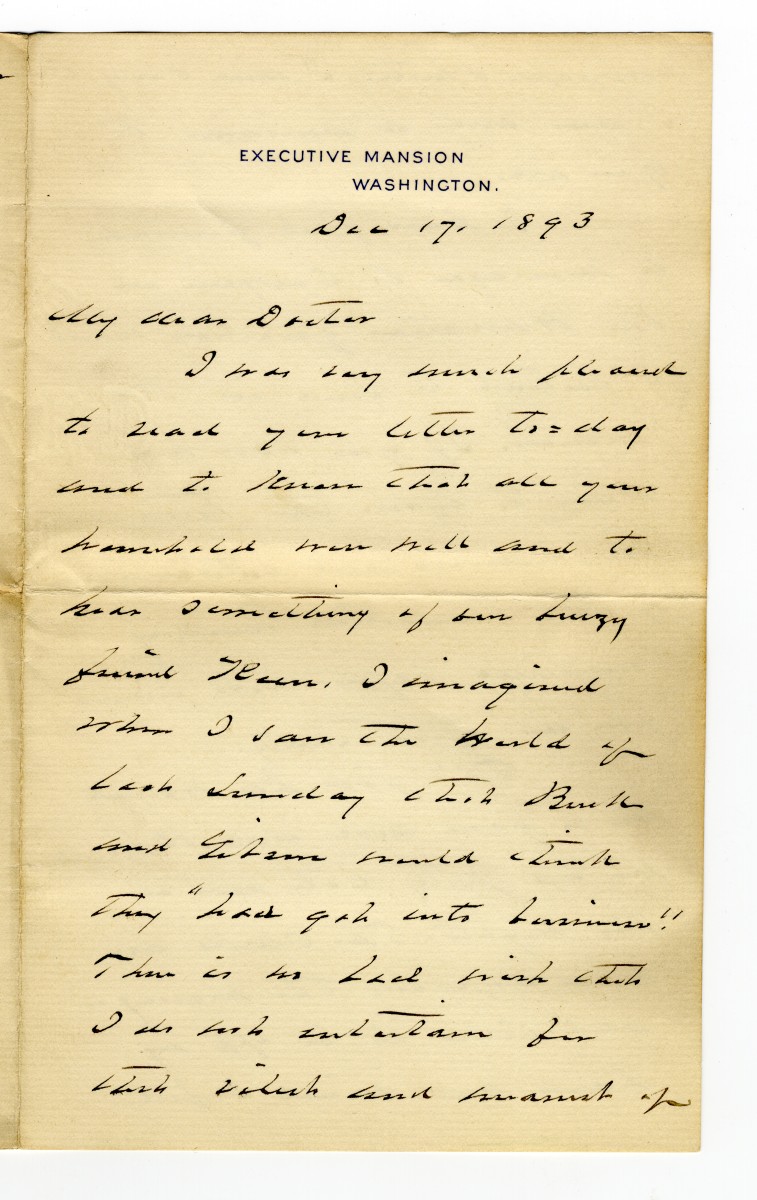 EXECUTIVE MANSION
WASHINGTON.
Dec 17, 1893
My dear Doctor
I was very much pleased
to read your letter to=day
and to know that all your
household were well and to
hear something of our breezy
friend Keen. I imagined
when I saw the World of
last Sunday that Buck
and Gibson would think
they "had got into business".
There is no bad wish that
I do not entertain for
that vilest and meanest of